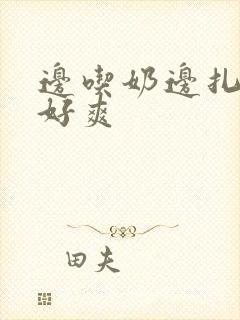 邊喫奶邊扎
好爽
田夫